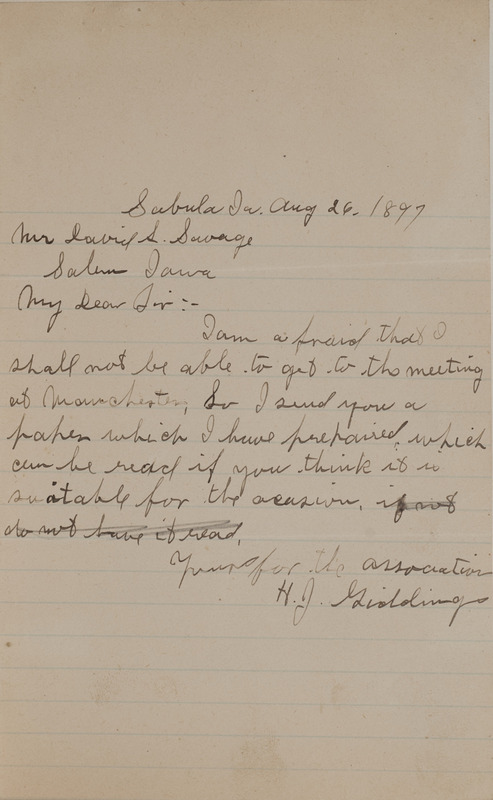 Sabula Ia. Aug 26. 1897
Mr David L. Savage
Salem Iowa
My Dear Sir:-
I am afraid that I
shall not be able to get to the meeting
at Manchester, So I send you a
paper which I have prepaired, which
can be read if you think it is
suitable for the acasion, if not
do not have it read.
Yours for the association
H. J. Giddings